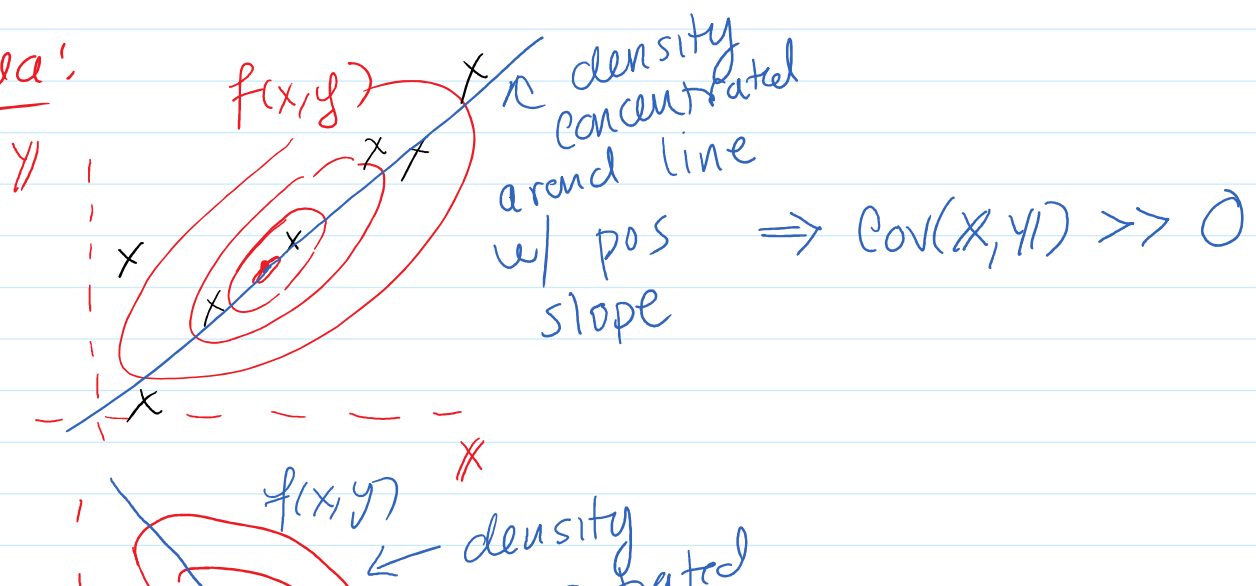 f(x,y)
density
concentrated
arond line
w/ pos
slope
⇒ Cov(X,Y) >> 0
y
x
f(x,y)
← density